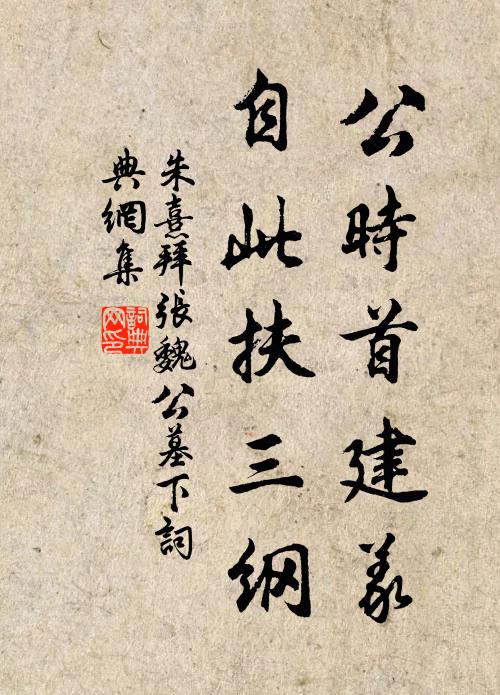 公時首建义
自此扶三纲
朱熹拜張魏公墓下詞
典網集
詞典网印